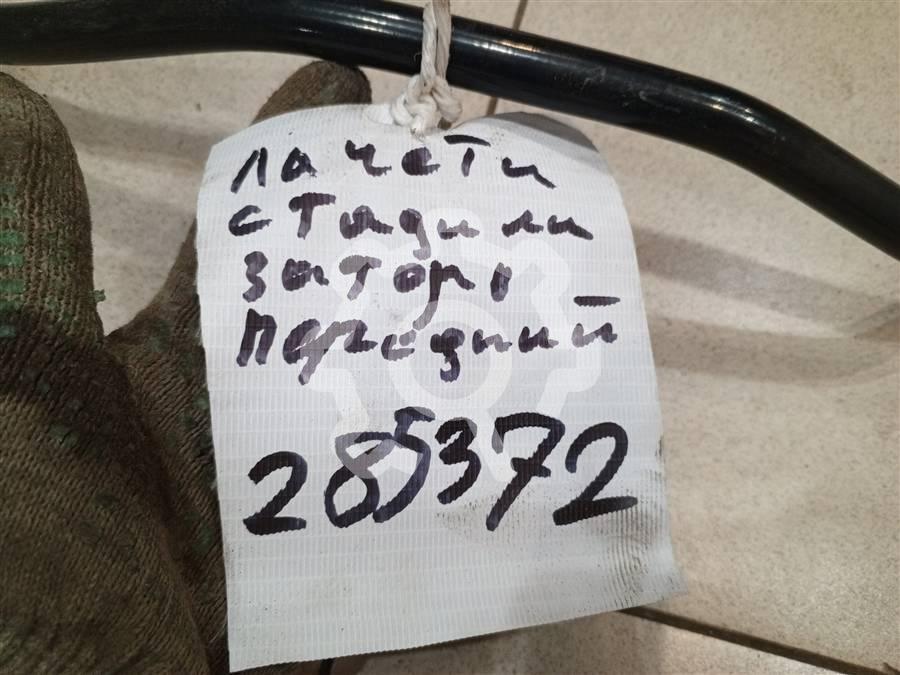 лачети
стади ли
затор,
передний
285372